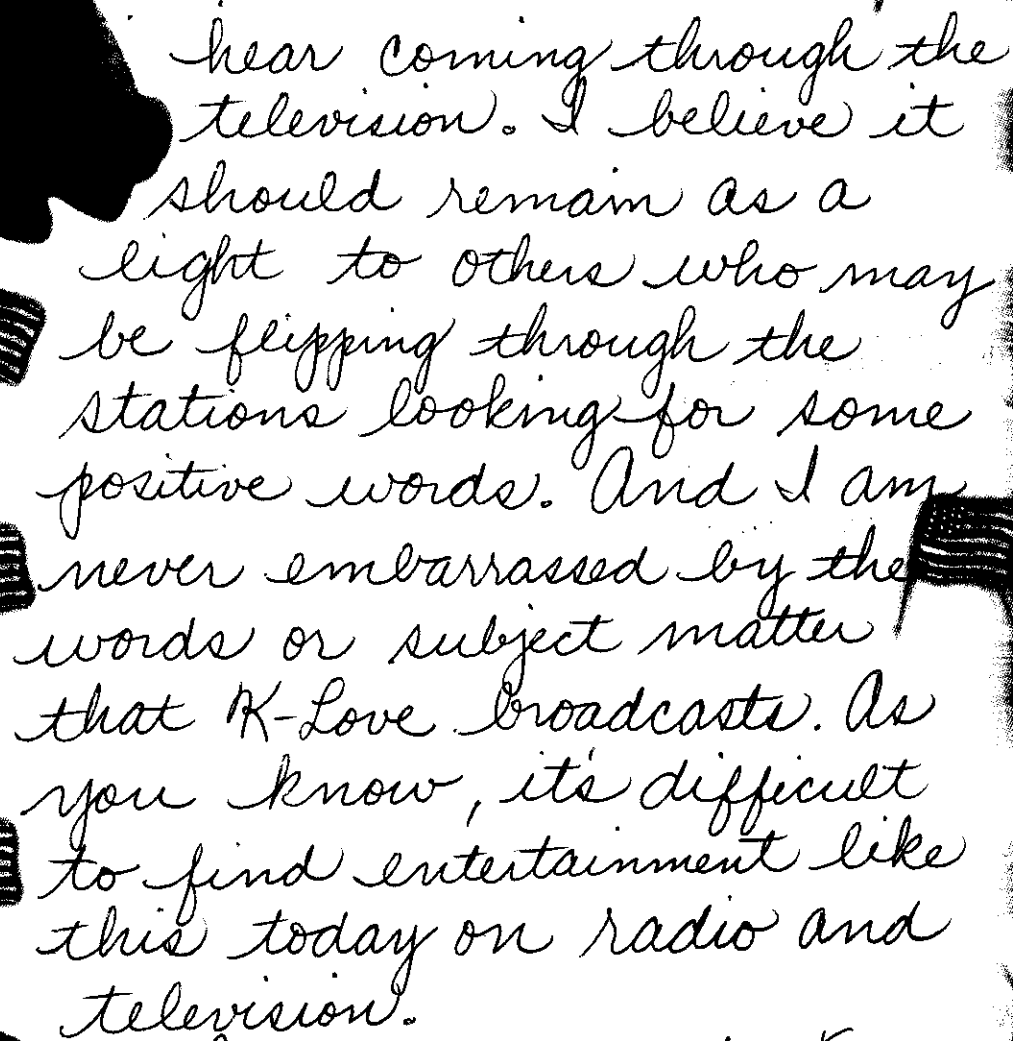 hear coming through the
television. I believe it
should remain as a
light to others who may
be flipping through the
stations looking for some
positive words. And I am
never embarrassed by the
words or subject matter
that K-Love broadcasts. As
you know, it's difficult
to find entertainment like
this today on radio and
television.